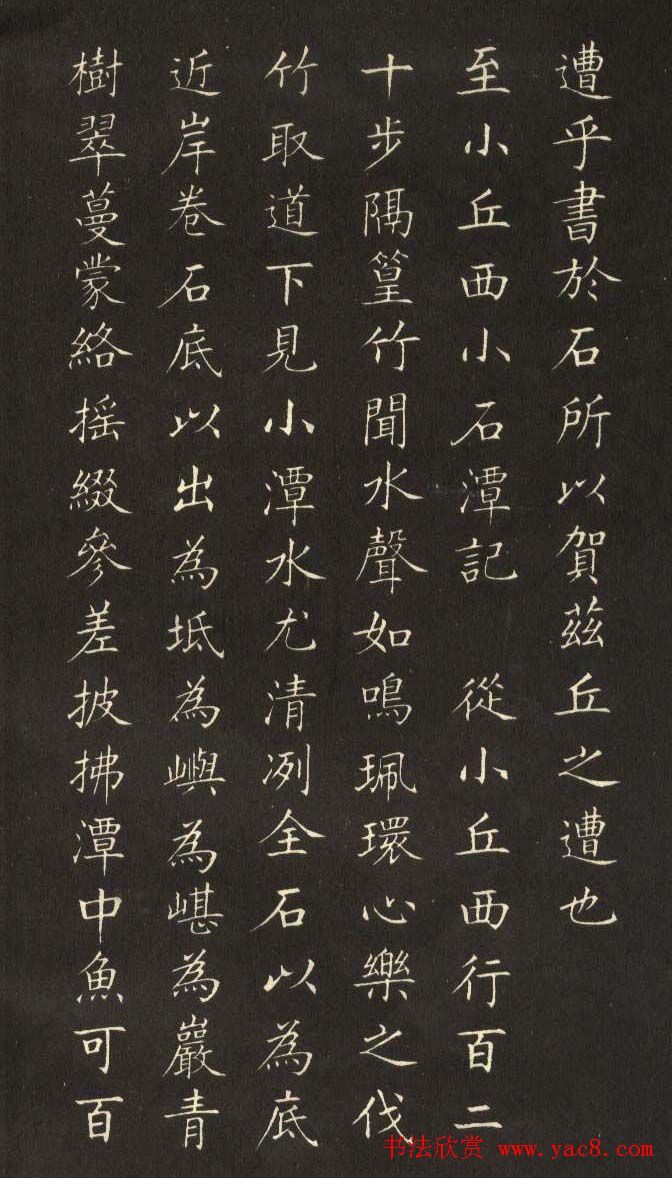 遭乎書於石所以賀茲丘之遭也
至小丘西小石潭記 從小丘西行百二
十步隔篁竹聞水聲如鳴珮環心樂之伐
竹取道下見小潭水尤清冽全石以為底
近岸卷石底以出為坻為嶼為嵁為巖青
樹翠蔓蒙絡摇綴參差披拂潭中魚可百
书法欣赏 www.yac8.com